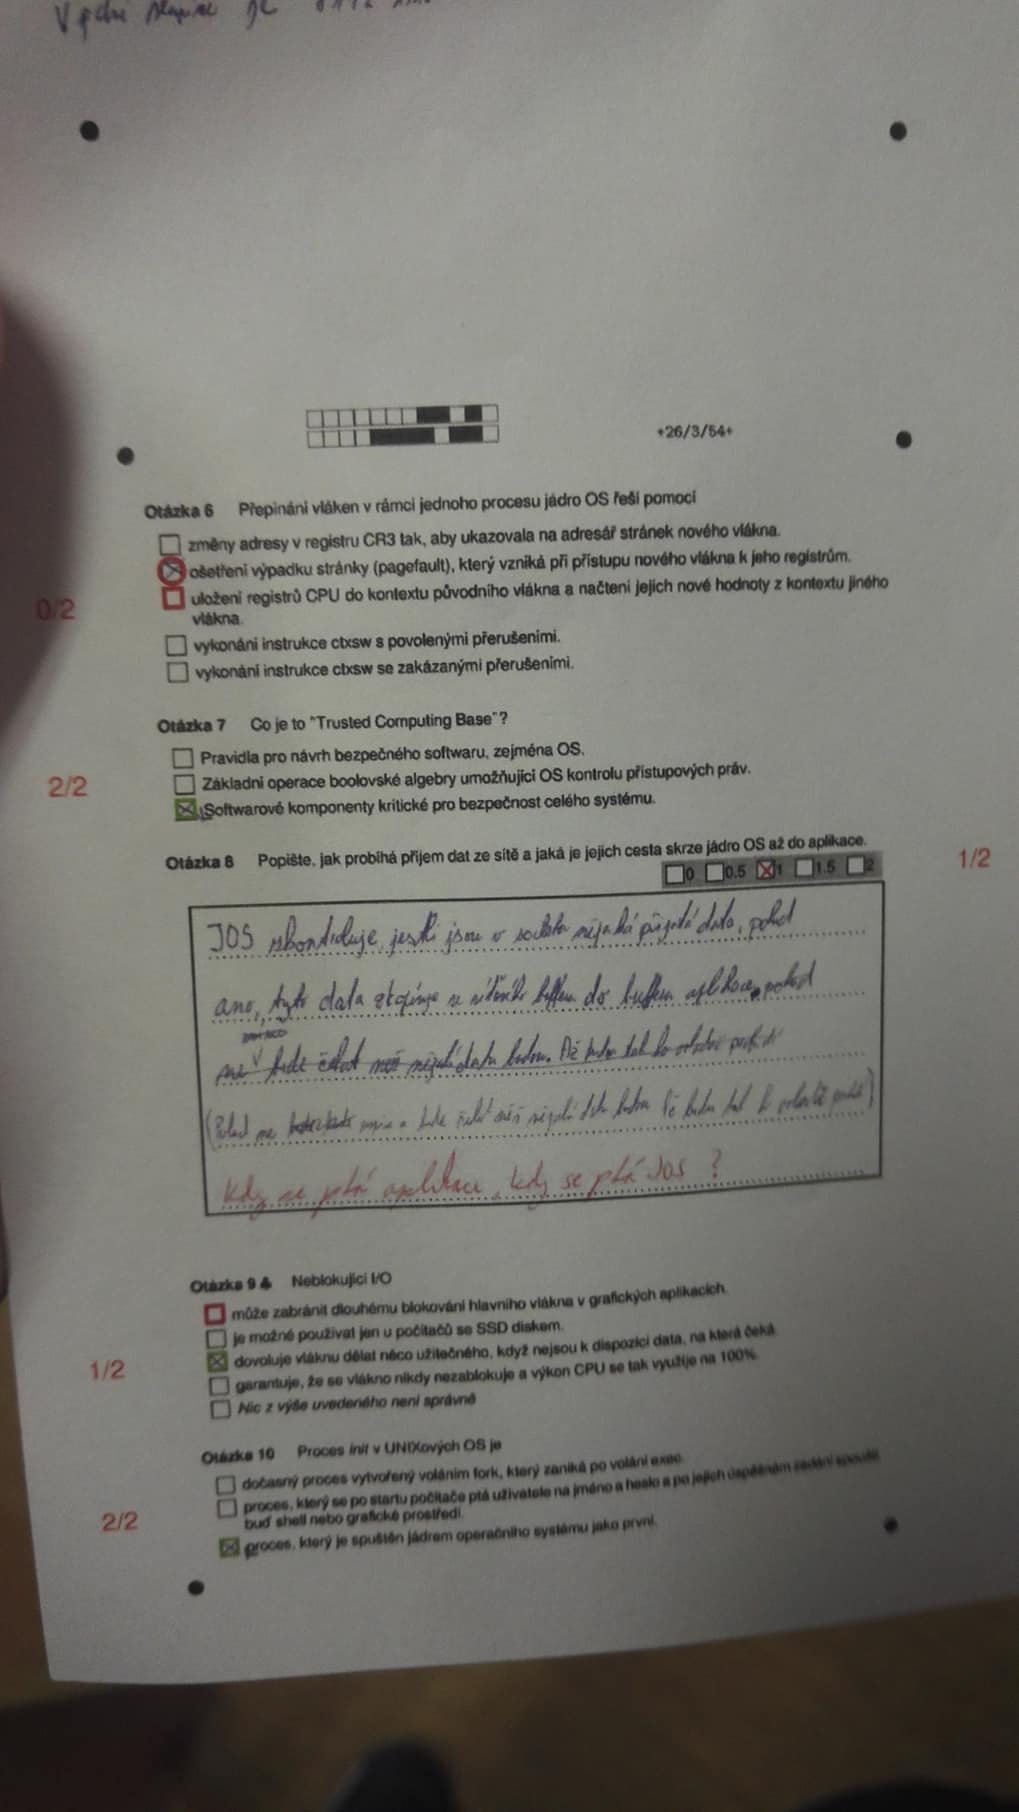 V
+26/3/54+
Otázka 6 Přepínání vláken v rámci jednoho procesu jádro OS řeší pomocí
změny adresy v registru CR3 tak, aby ukazovala na adresář stránek nového vlákna.
ošetření výpadku stránky (pagefault), který vzniká při přístupu nového vlákna k jeho registrům.
uložení registrů CPU do kontextu původního vlákna a načtení jejich nové hodnoty z kontextu jiného
vlákna.
0/2
vykonání instrukce ctxsw s povolenými přerušeními.
vykonání instrukce ctxsw se zakázanými přerušeními.
Otázka 7 Co je to "Trusted Computing Base"?
Pravidla pro návrh bezpečného softwaru, zejména OS.
Základní operace boolovské algebry umožňující OS kontrolu přístupových práv.
2/2
Softwarové komponenty kritické pro bezpečnost celého systému.
Otázka 8 Popište, jak probíhá příjem dat ze sítě a jaká je jejich cesta skrze jádro OS až do aplikace.
0 0.5 1 1.5 2
1/2
JOS jestli jsou v nějaká přijatá data, pokud
ano, tyto data do bufferu aplikace, pokud
Kdy se ptá aplikace, kdy se ptá JOS?
Otázka 9 ♣ Neblokující I/O
může zabránit dlouhému blokování hlavního vlákna v grafických aplikacích.
je možné používat jen u počítačů se SSD diskem.
dovoluje vláknu dělat něco užitečného, když nejsou k dispozici data, na která čeká.
1/2
garantuje, že se vlákno nikdy nezablokuje a výkon CPU se tak využije na 100%.
Nic z výše uvedeného není správné
Otázka 10 Proces init v UNIXových OS je
dočasný proces vytvořený voláním fork, který zaniká po volání exec.
proces, který se po startu počítače ptá uživatele na jméno a heslo a po jejich úspěšném zadání spouští
buď shell nebo grafické prostředí.
2/2
proces, který je spuštěn jádrem operačního systému jako první.